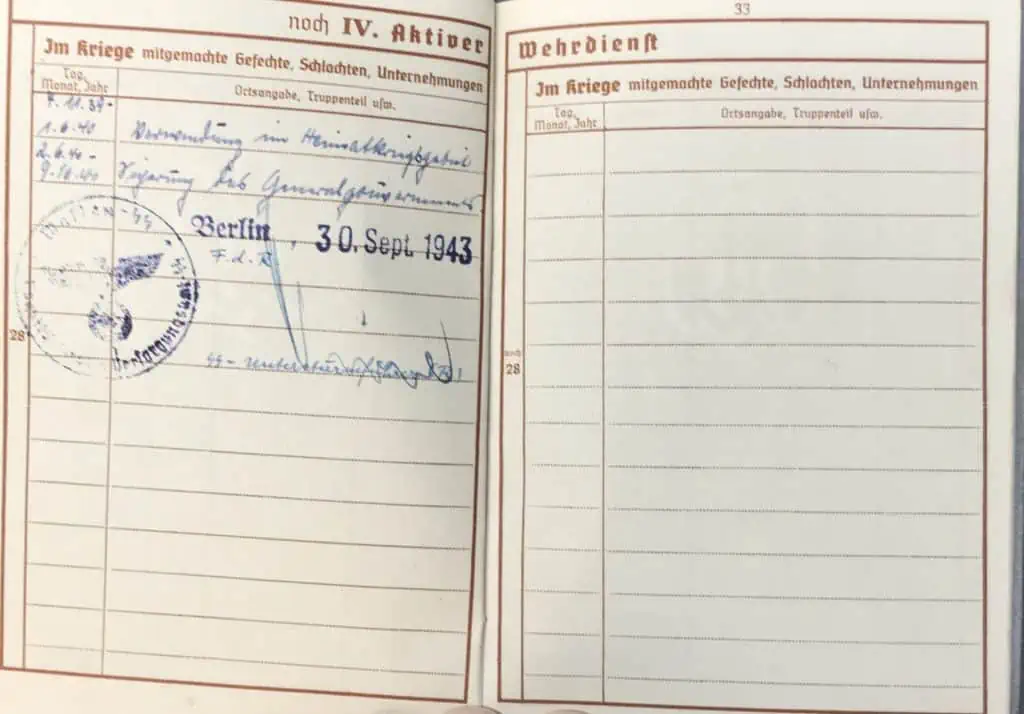 noch IV. Aktiver
Im Kriege mitgemachte Gefechte, Schlachten, Unternehmungen
Tag, Monat, Jahr
Ortsangabe, Truppenteil usw.
7. 11. 39-
1. 6. 40 Verwendung im Heimatkriegsgebiet
2. 6. 40 -
9. 10. 40 Sicherung des Generalgouvernements
Waffen-SS
Versorgungsamt
Berlin, 30. Sept. 1943
F. d. R
28
SS-Untersturmführer
33
Wehrdienst
Im Kriege mitgemachte Gefechte, Schlachten, Unternehmungen
Tag, Monat, Jahr
Ortsangabe, Truppenteil usw.
noch
28